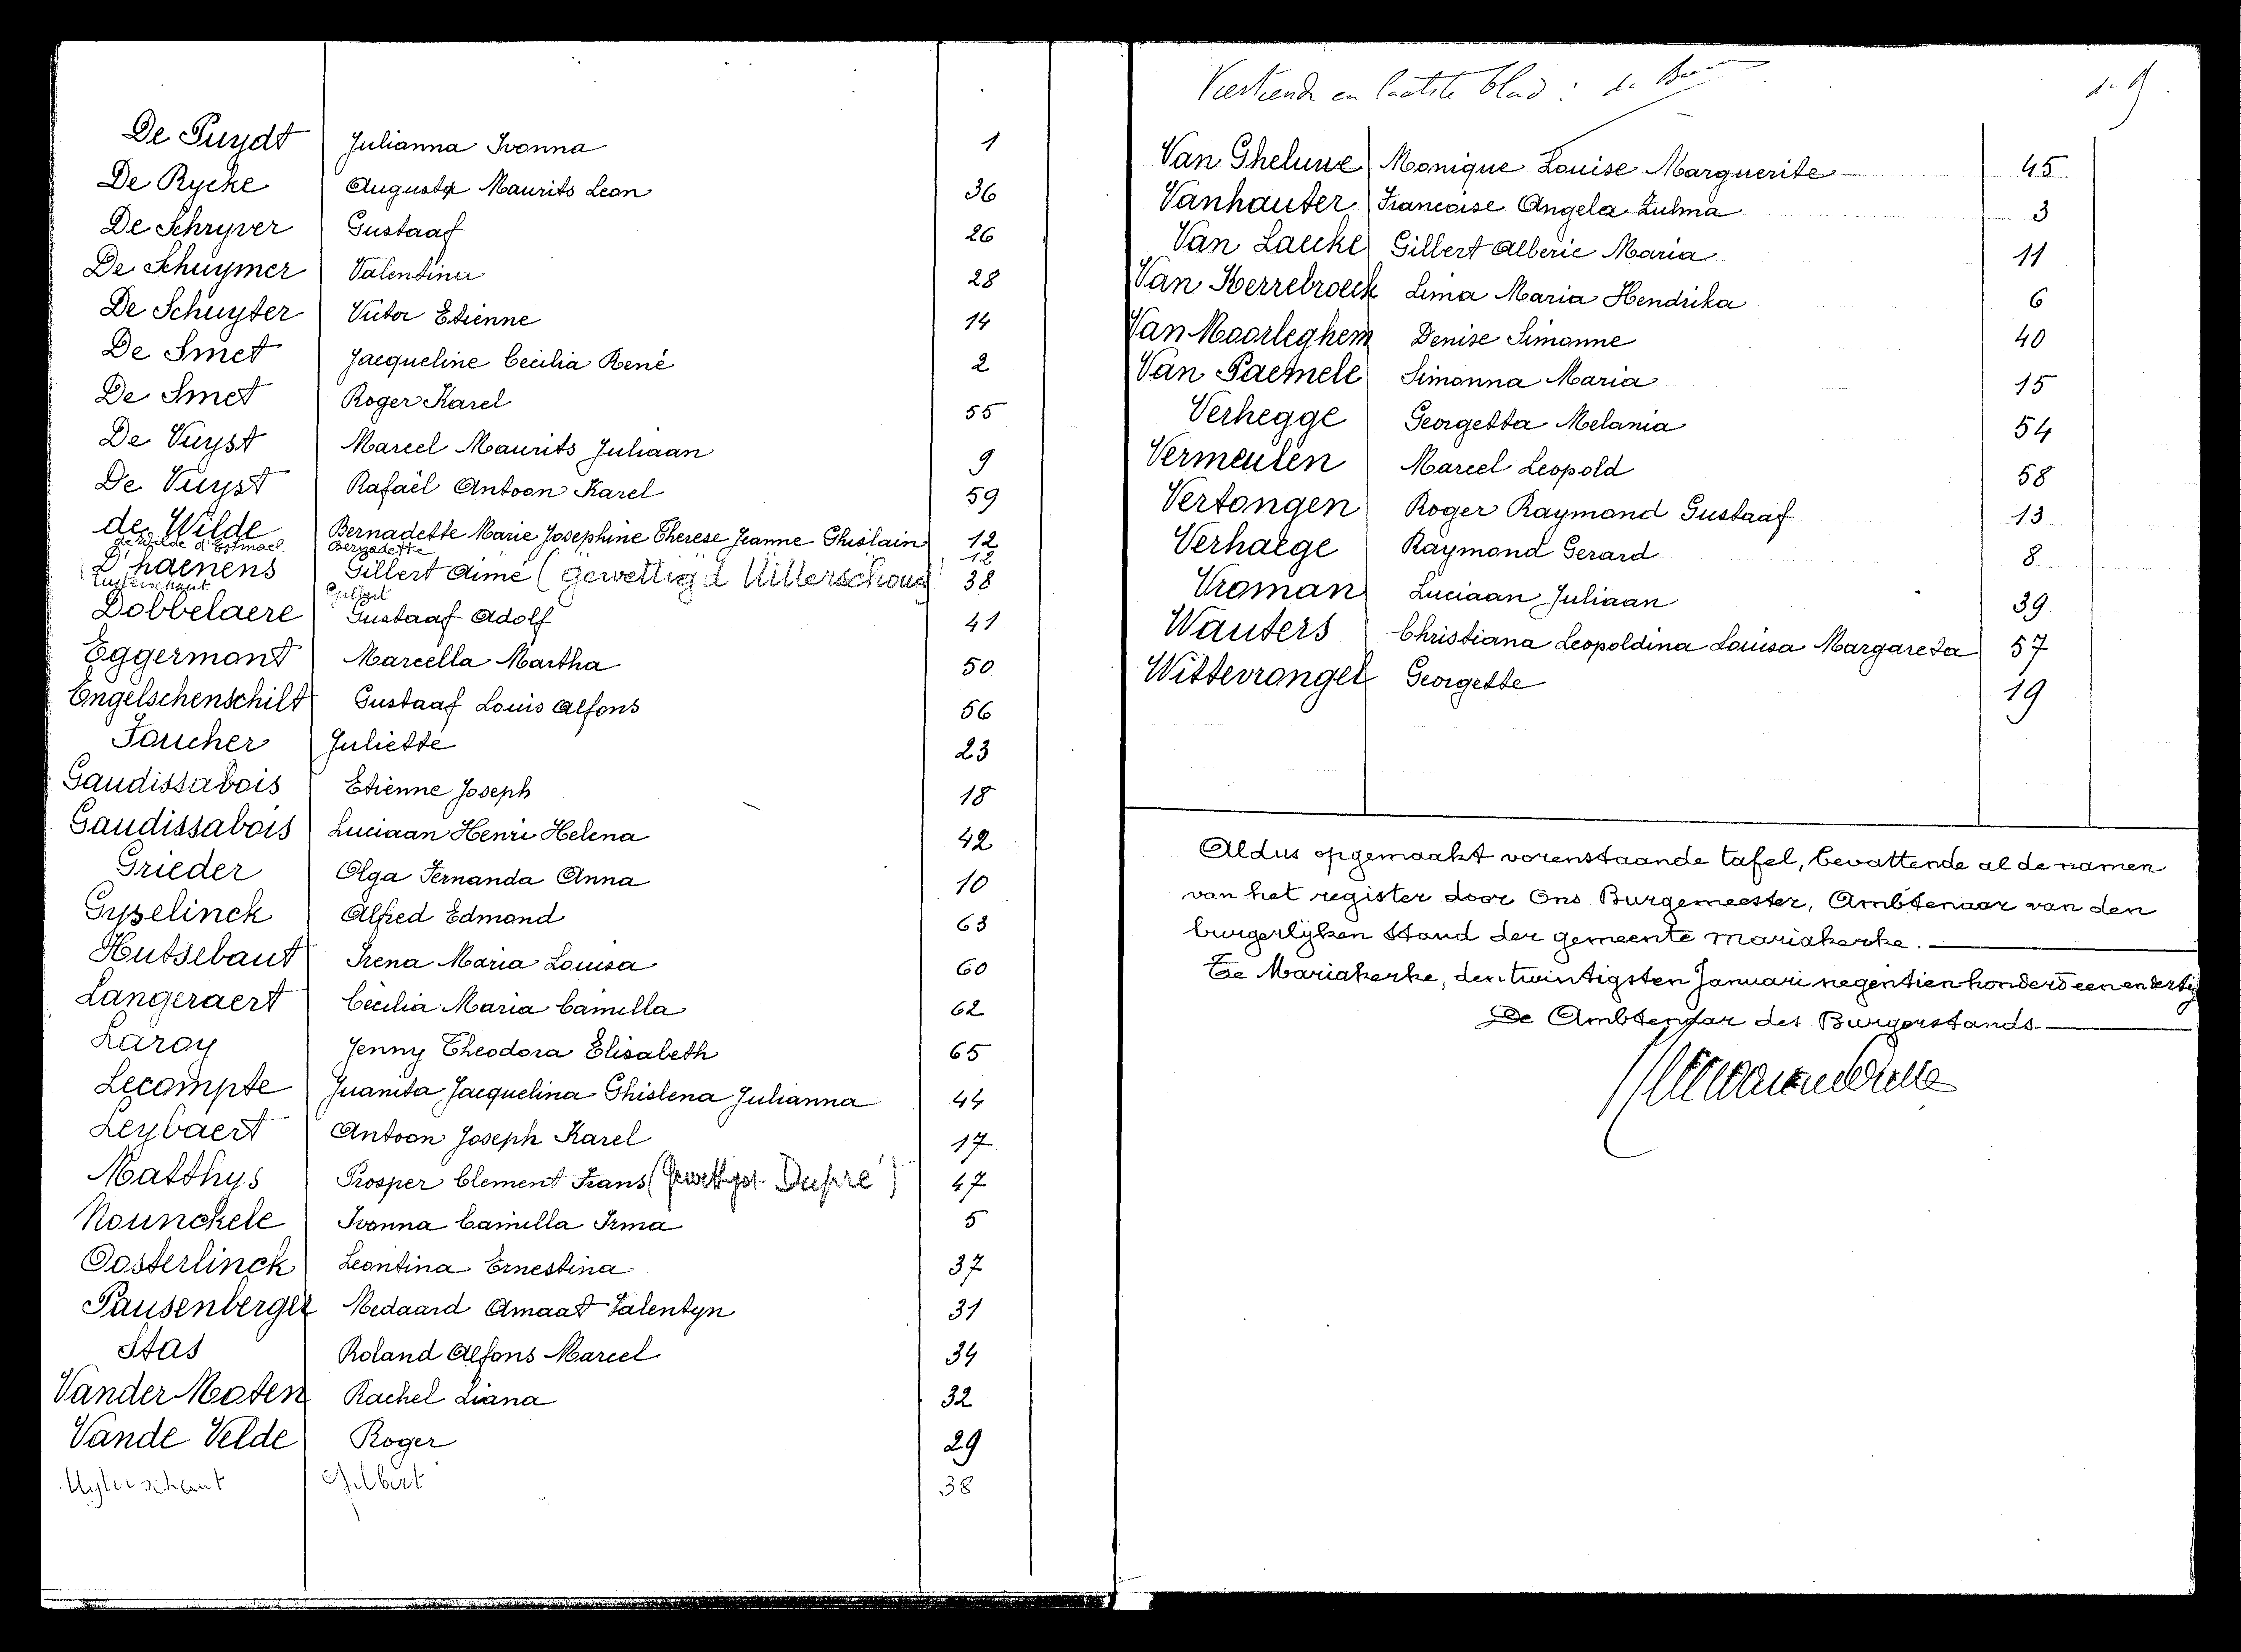 De Puydt Julianna Ivonna 1
De Rycke Augusta Maurits Leon 36
De Schryver Gustaaf 26
De Schuymer Valentina 28
De Schuyter Victor Etienne 14
De Smet Jacqueline Cecilia René 2
De Smet Roger Karel 55
De Vuyst Marcel Maurits Juliaan 9
De Vuyst Rafaël Antoon Karel 59
de Wilde Bernadette Marie Josephine Therese Jeanne Ghislain 12
de Wilde d'Estmael Bernadette 12
D'haenens Gillert Aimé (gewettigd Uitterschout) 38
Uytterschaut
Dobbelaere Gustaaf Adolf 41
Eggermont Marcella Martha 50
Engelschenschilt Gustaaf Louis Alfons 56
Faucher Juliette 23
Gaudissabois Etienne Joseph 18
Gaudissabois Luciaan Henri Helena 42
Grieder Olga Fernanda Anna 10
Gyselinck Alfred Edmond 63
Hutsebaut Irena Maria Louisa 60
Langeraert Cècilia Maria Camilla 62
Laroy Jenny Theodora Elisabeth 65
Lecompte Juanita Jacquelina Ghislena Julianna 44
Leybaert Antoon Joseph Karel 17
Matthys Prosper Clement Frans (Gewettigd Dupré) 47
Nounckele Ivonna Camilla Irma 5
Oosterlinck Leontina Ernestina 37
Pausenberger Medaard Amaat Valentyn 31
Stas Roland Alfons Marcel 34
Vander Maten Rachel Liana 32
Vande Velde Roger 29
Uyterschaut Gilbert 38
Veertiende en laatste blad : de
Van Gheluwe Monique Louise Marguerite 45
Vanhauter Francoise Angela Zulma 3
Van Laecke Gillert Alberic Maria 11
Van Kerrebroeck Lima Maria Hendrika 6
Van Moorleghem Denise Simonne 40
Van Paemele Simonna Maria 15
Verhegge Georgetta Melania 54
Vermeulen Marcel Leopold 58
Vertongen Roger Raymond Gustaaf 13
Verhaege Raymond Gerard 8
Vroman Luciaan Juliaan 39
Wauters Christiana Leopoldina Louisa Margareta 57
Wittevrongel Georgette 19
Aldus opgemaakt vorenstaande tafel, bevattende al de namen
van het register door Ons Burgemeester, Ambtenaar van den
burgerlijken Stand der gemeente Mariakerke.
Te Mariakerke, den twintigsten Januari negentienhonderd een en dertig
De Ambtenaar des Burgerstands.